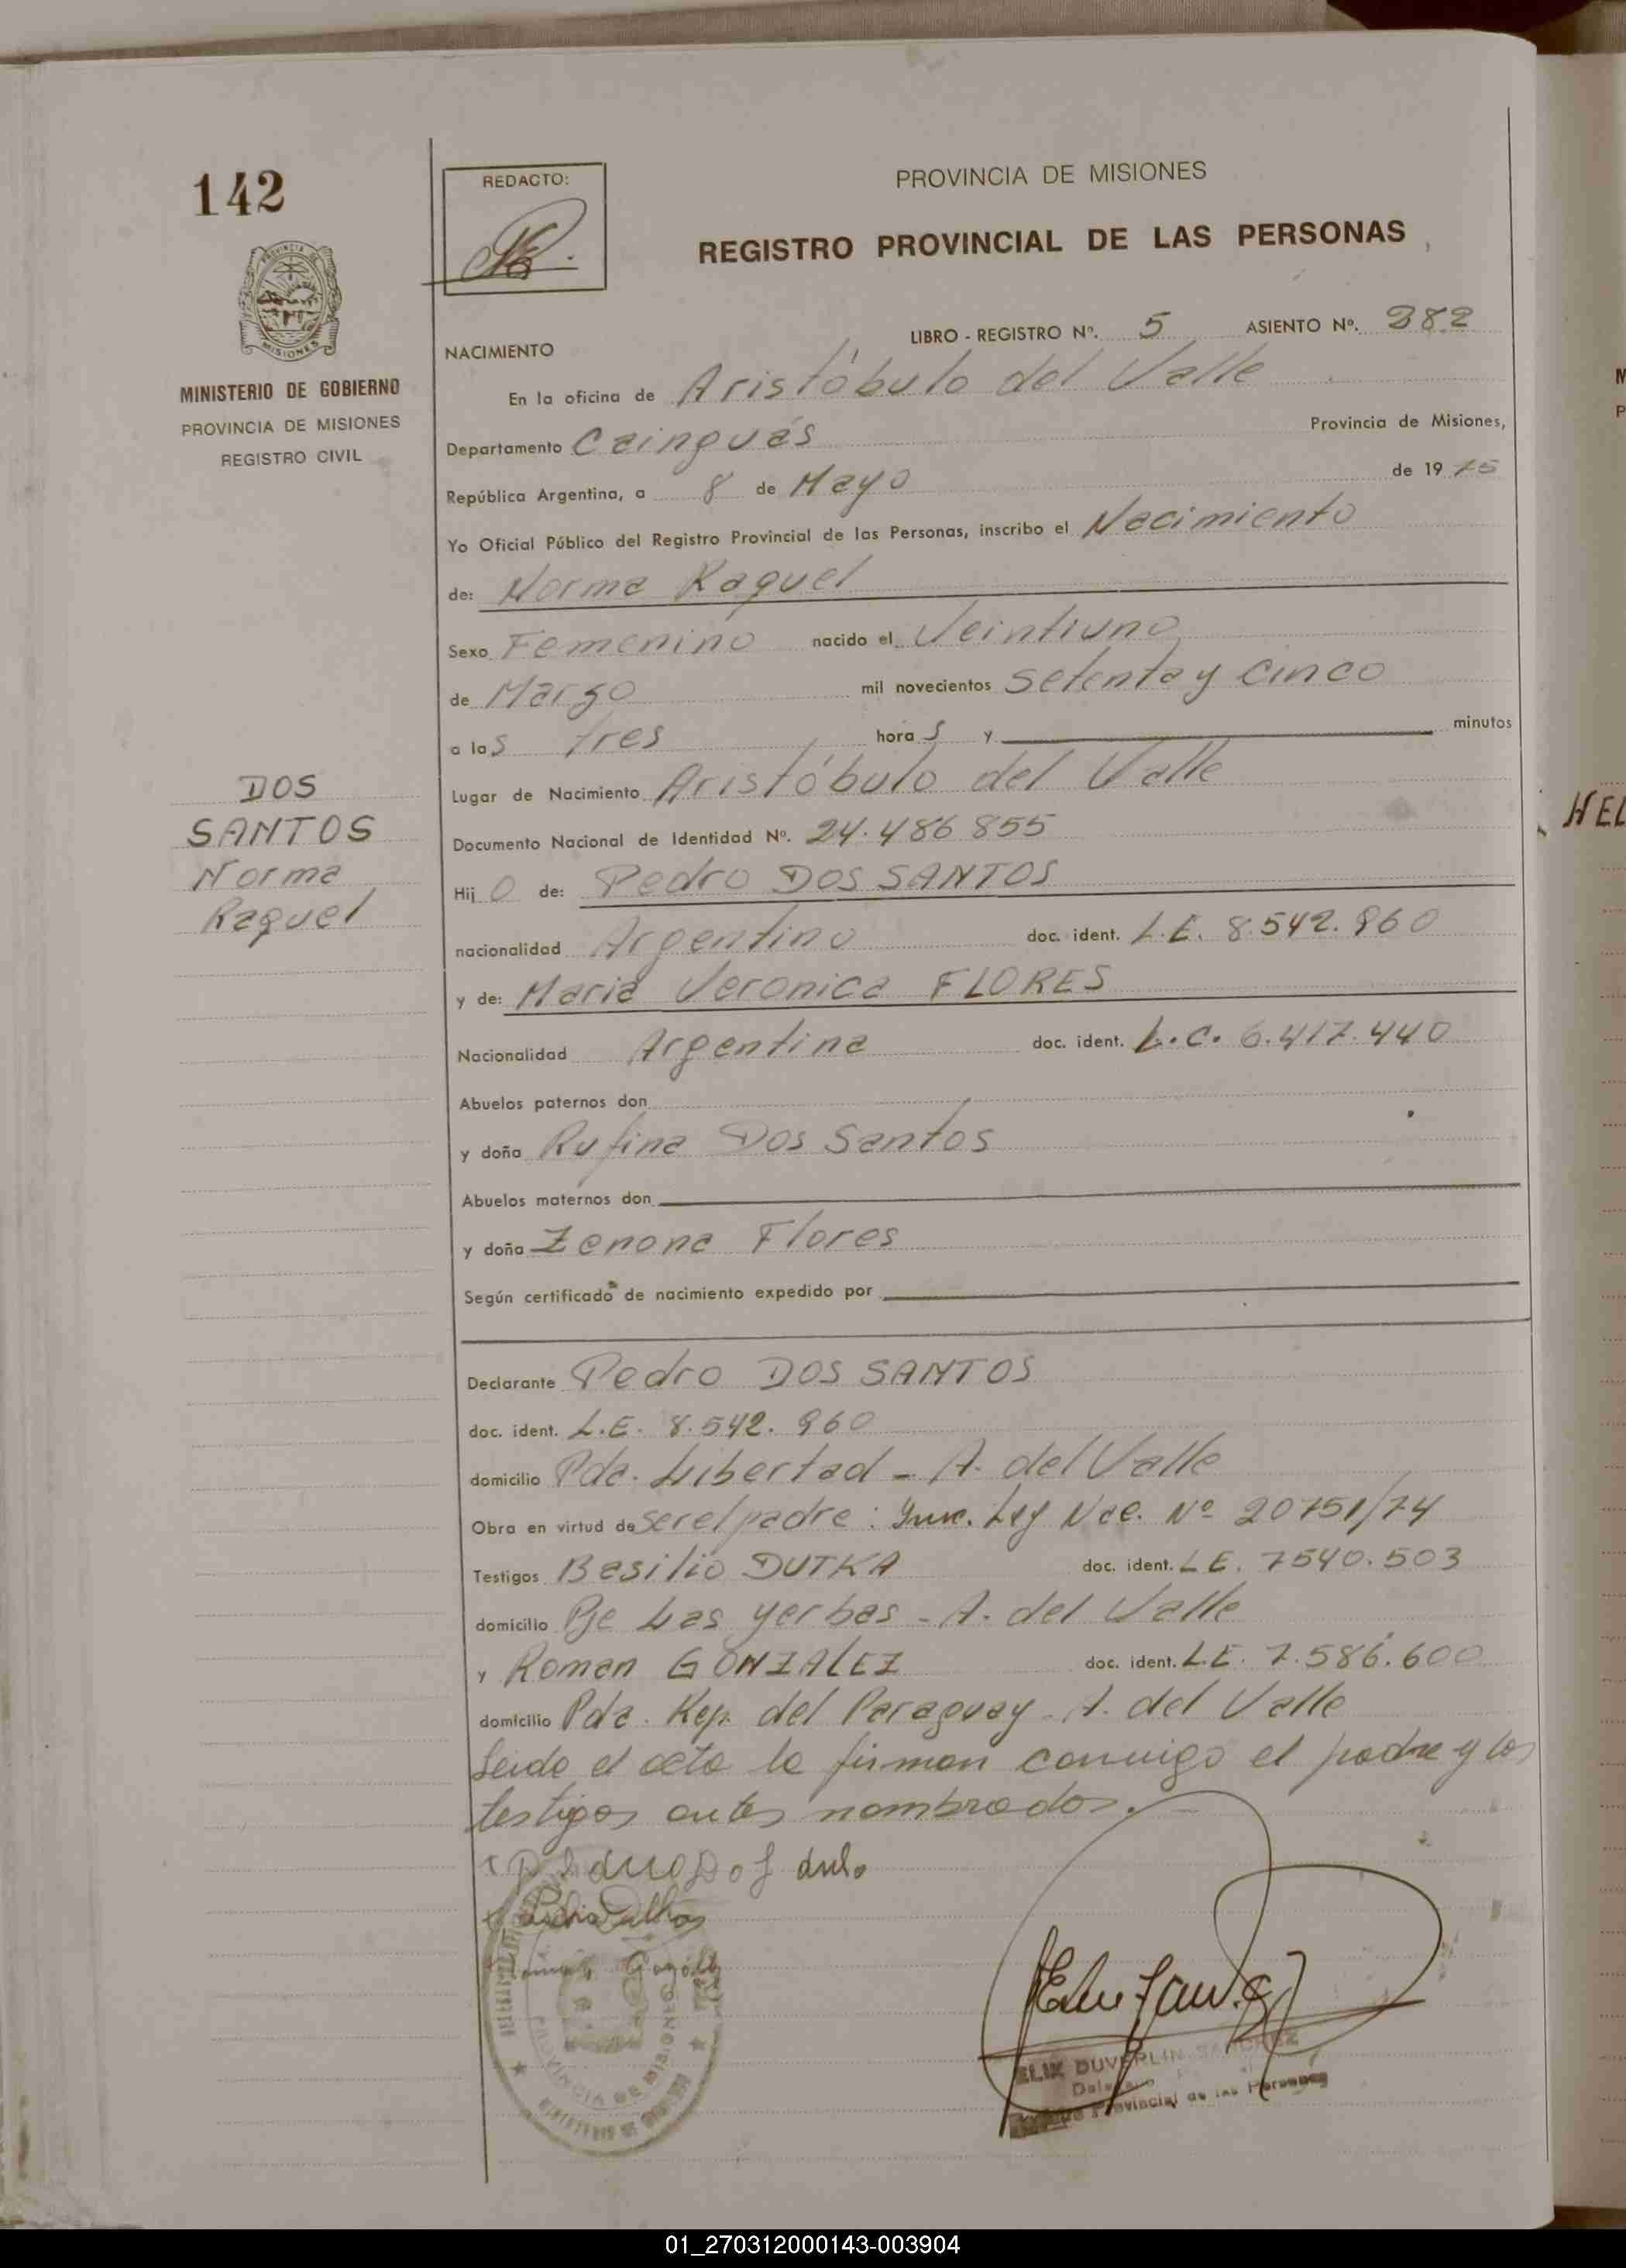 142
REDACTO:
PROVINCIA DE MISIONES
REGISTRO PROVINCIAL DE LAS PERSONAS
MINISTERIO DE GOBIERNO
PROVINCIA DE MISIONES
REGISTRO CIVIL
LIBRO - REGISTRO Nº. 5 ASIENTO Nº. 382
NACIMIENTO
En la oficina de Aristóbulo del Valle
Departamento Cainguás Provincia de Misiones,
República Argentina, a 8 de Mayo de 19 75
Yo Oficial Público del Registro Provincial de las Personas, inscribo el Nacimiento
de: Norma Raquel
Sexo Femenino nacido el Veintiuno
de Marzo mil novecientos setenta y cinco
a las tres horas y minutos
Lugar de Nacimiento Aristóbulo del Valle
DOS
SANTOS
Norma
Raquel
Documento Nacional de Identidad Nº. 24.486 855
Hijo de: Pedro DOS SANTOS
nacionalidad Argentino doc. ident. L.E. 8.542.960
y de: Maria Veronica FLORES
Nacionalidad Argentina doc. ident. L.C. 6.417.440
Abuelos paternos don
y doña Rufina Dos Santos
Abuelos maternos don
y doña Zenona Flores
Según certificado de nacimiento expedido por
Declarante Pedro DOS SANTOS
doc. ident. L.E. 8.542.960
domicilio Pda. Libertad - A. del Valle
Obra en virtud de ser el padre: Ley Nac. Nº 20751/74
Testigos Basilio DUTKA doc. ident. L.E. 7540.503
domicilio Pje Las Yerbas - A. del Valle
y Roman GONZALEZ doc. ident. L.E. 7.586.600
domicilio Pda. Rep. del Paraguay - A. del Valle
Leida el acta la firman conmigo el padre y los
testigos antes nombrados.
PROVINCIA DE MISIONES
DUVERLIN SANCHEZ
Provincial de las Personas
HEL
01_270312000143-003904